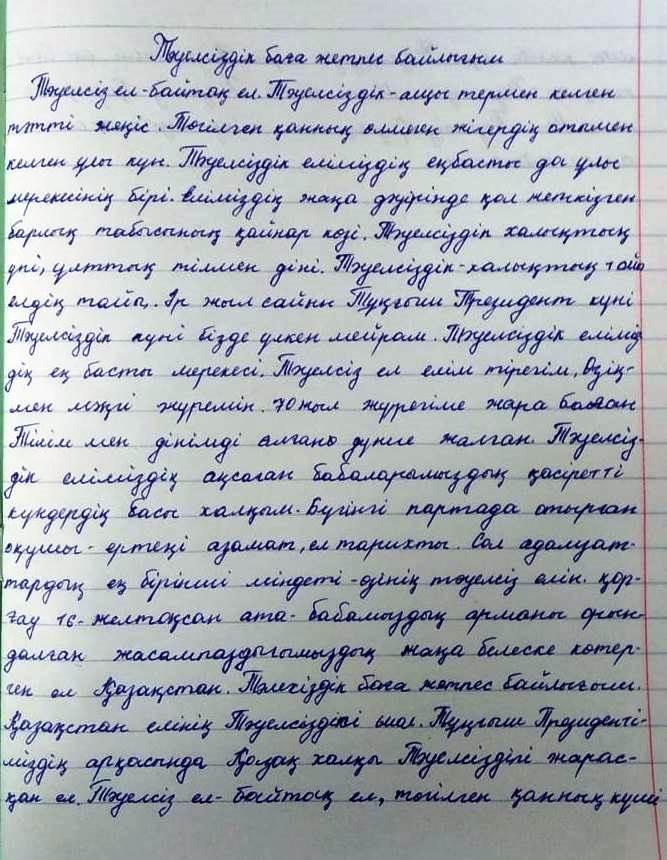 Тәуелсіздік баға жетпес байлығым
Тәуелсіз ел-байтақ ел. Тәуелсіздік-ащы термен келген
тәтті жеңіс. Төгілген қанның өлмеген жігердің отымен
келген ұлы күн. Тәуелсіздік еліміздің еңбасты да ұлы
мерекесінің бірі. Еліміздің жаңа дәуірінде қол жеткізген
барлық табысының қайнар көзі. Тәуелсіздік халықтың
үні, ұлттық тілмен діні. Тәуелсіздік-халықтың
елдің тайы. Әр жыл сайын Тұңғыш Президент күні
Тәуелсіздік күні бізде үлкен мейрам. Тәуелсіздік елімі
дің ең басты мерекесі. Тәуелсіз ел елім тірегім, Өзің-
мен мәңгі жүремін. 70 жыл жүрегіме жара болған
Тілім мен дінімді алғано дүние жалған. Тәуелсіз-
дік еліміздің ақсаған бабаларымыздың қасіретті
күндердің басы халқым. Бүгінгі партада отырған
оқушы - ертеңі азамат, ел тарихты. Сол адалуат-
тардың ең бірінші міндеті -өзінің тәуелсіз елін. қор-
ғау 16- желтоқсан ата- бабамыздың арманы орын-
далған жасампаздығымыздың жаңа белеске көтер-
ген ел Қазақстан. баға жетпес байлығым.
Қазақстан елінің Тәуелсіздікі Тұңғыш Президенті-
міздің арқасында Қазақ халқы Тәуелсіздігі жарас-
қан ел. Тәуелсіз ел- байтақ ел, төгілген қанның күші